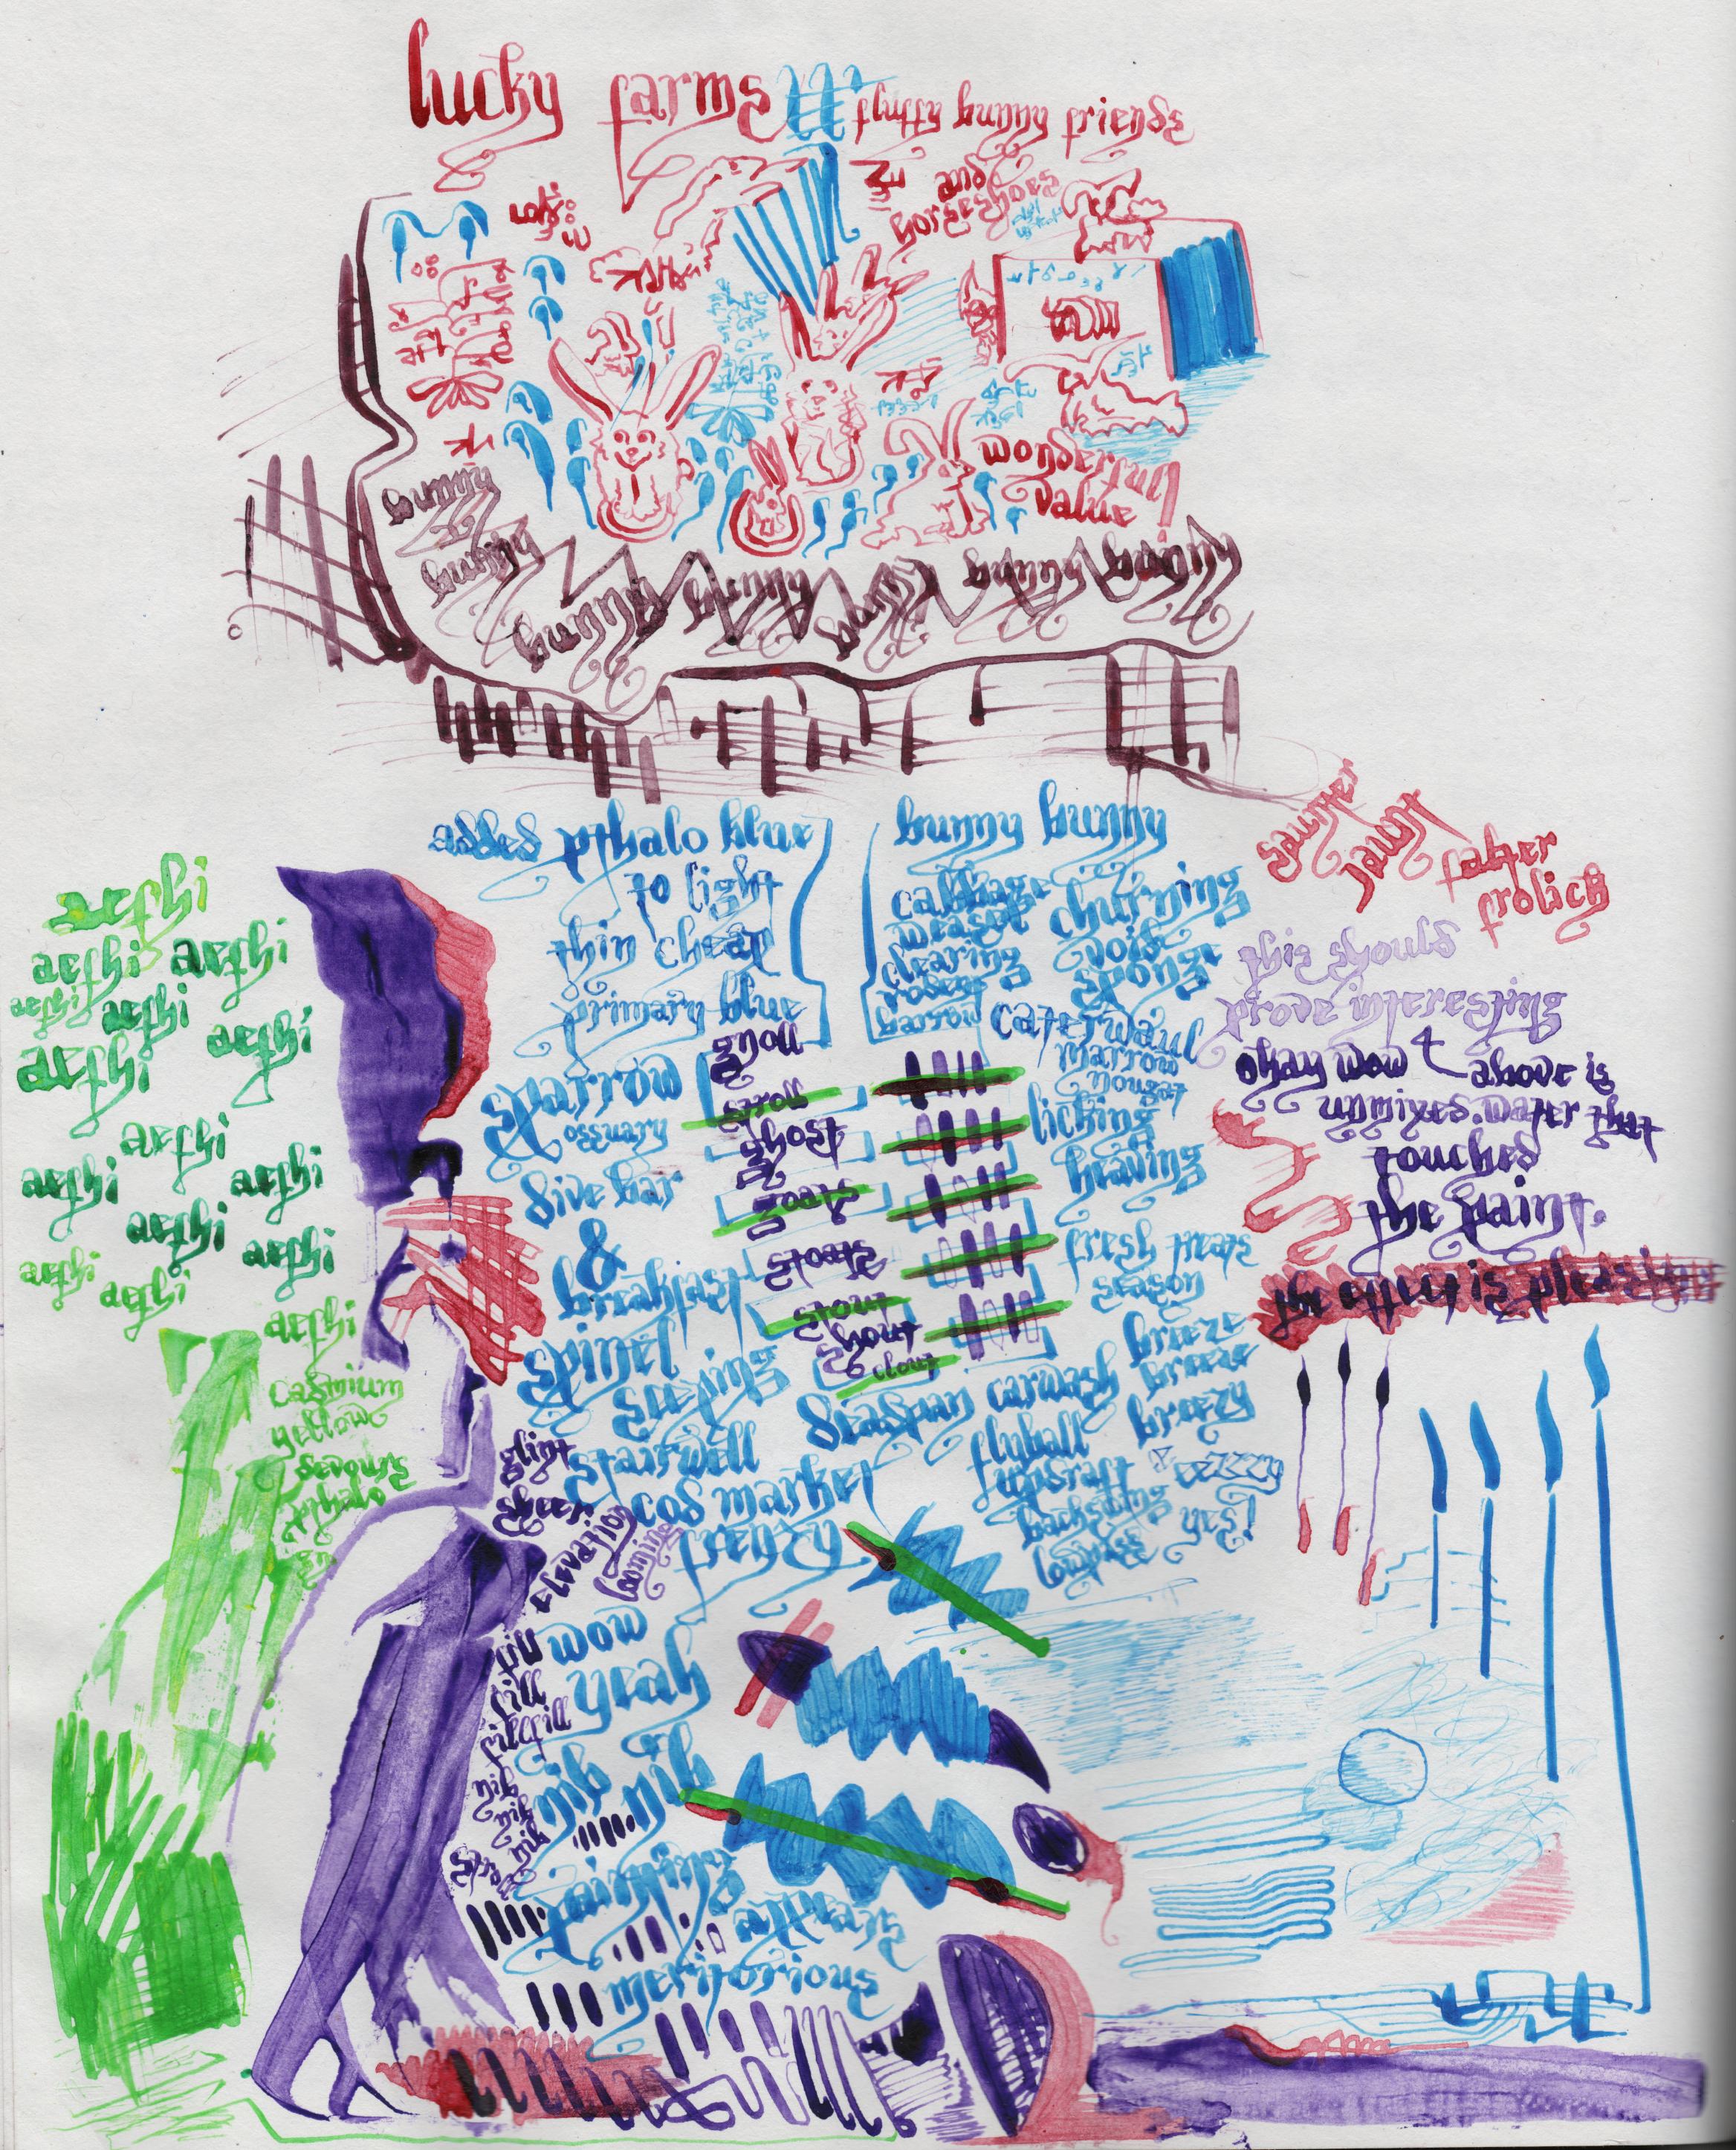 lucky farms
fluffy bunny friends
and
horseshoes
wonderful
value!
bunny
bunny
bunny bunny bunny bunny bunny
added pthalo blue
to light
thin cheap
primary blue
bunny bunny
cabbage
weasel
clearing
rodent
barrow
churning
void
sponge
caterwaul
marrow
nougat
licking
heaving
fresh treats
season
breeze
breeze
breezy
saunter
jaunt
falter
frolick
this should
prove interesting
okay wow above is
unmixed. water that
touched
the paint.
the effect is pleasing
aethi
aethi aethi
aethi aethi
aethi
aethi
aethi
aethi aethi
aethi aethi
aethi aethi
aethi
cadmium
yellow
devours
pthalo
gn
sparrow
ossuary
dive bar
&
breakfast
spinel
seeping
stairwell
cod market
frenzy
gnoll
stroll
ghost
goats
stoats
stout
shout
clout
seaspan carwash
flyball
updraft
backswing
lowpass
yes!
glint
sheer
wow
yeah
till
fill
nib nib
nib
nib
nib
painting
always
meritorious